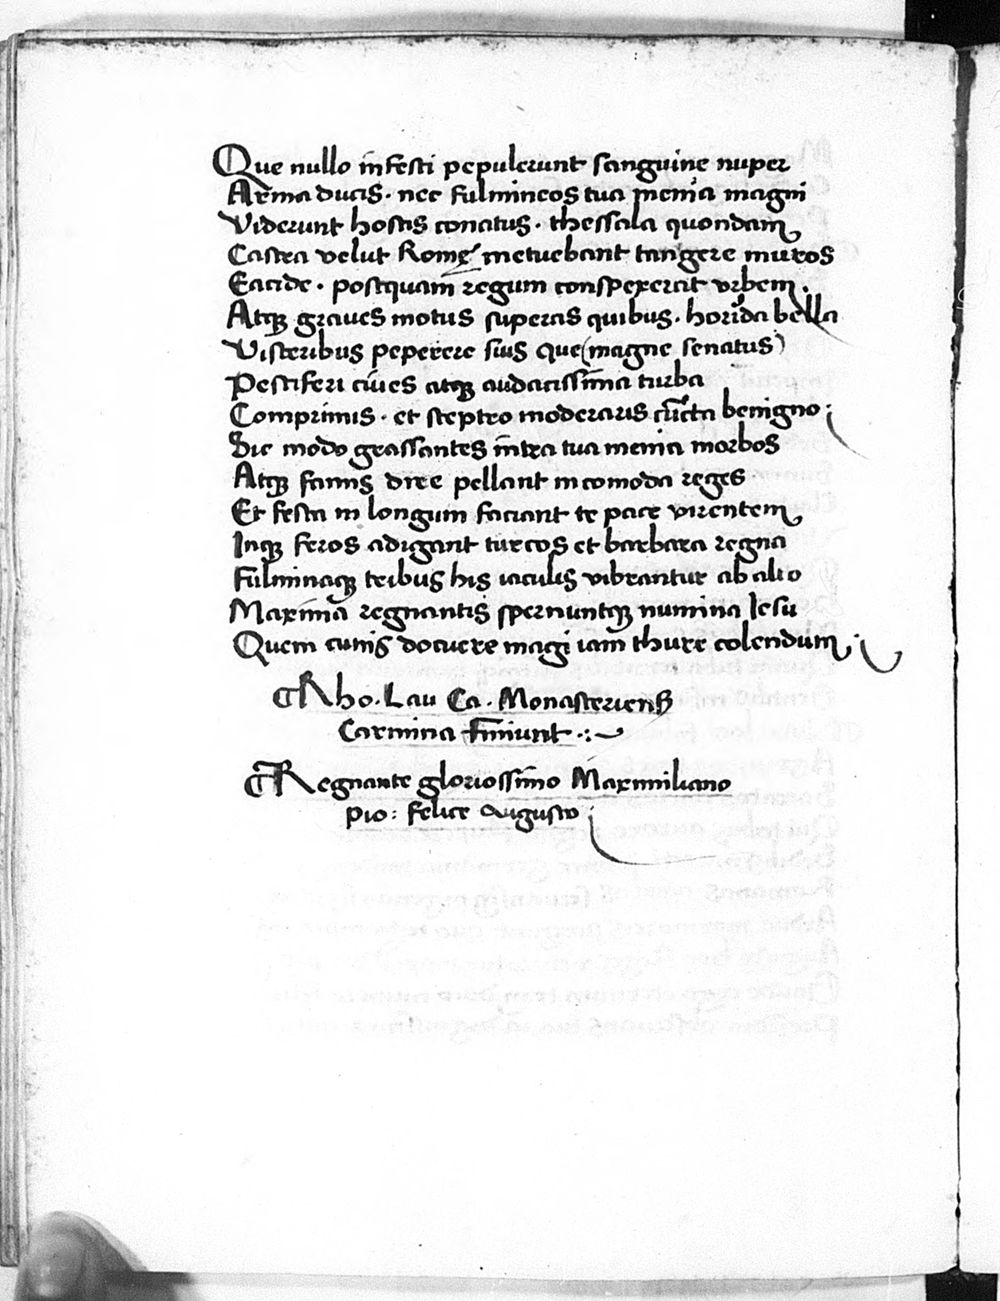 Que nullo infesti pepulerunt sanguine nuper
Arma ducis · nec fulmineos tua menia magni
Viderunt hostis conatus · thessala quondam
Castra velut Romę metuebant tangere muros
Eacide · postquam regum conspexerat vrbem ·
Atqꝫ graues motus superas quibus · horrida bella
Visceribus peperere suis que (magne senatus)
Pestiferi ciues atqꝫ audacissima turba
Comprimis · et sceptro moderaris cūcta benigno ;
Sic modo grassantes intra tua menia morbos
Atqꝫ famis dire pellant incomoda reges
Et festa in longum faciant te pace virentem
Inqꝫ feros adigant turcos et barbara regna
Fulminaqꝫ tribus his iaculis vibrantur ab alto
Maxima regnantis spernuntqꝫ numina Iesu
Quem cunis docuere magi iam thure colendum ;
¶ Rho. Lau Ca. Monasterienß
Carmina finiunt ·:~
¶ Regnante gloriossimo Maximiliano
pio: felice Augusto ;